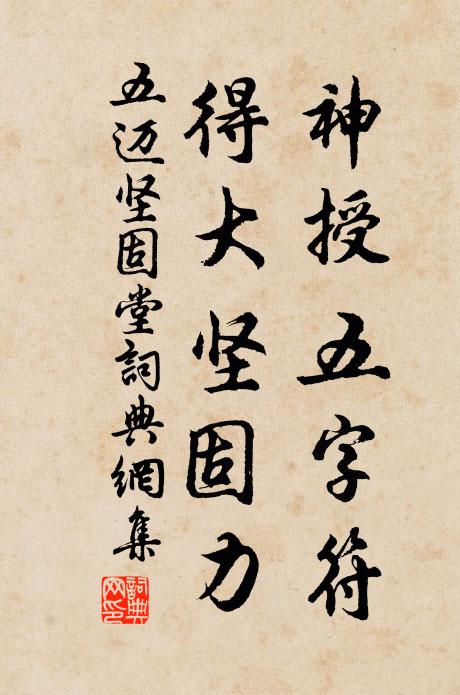 神授五字符
得大坚固力
五迈坚固堂詞典網集
詞典
网印